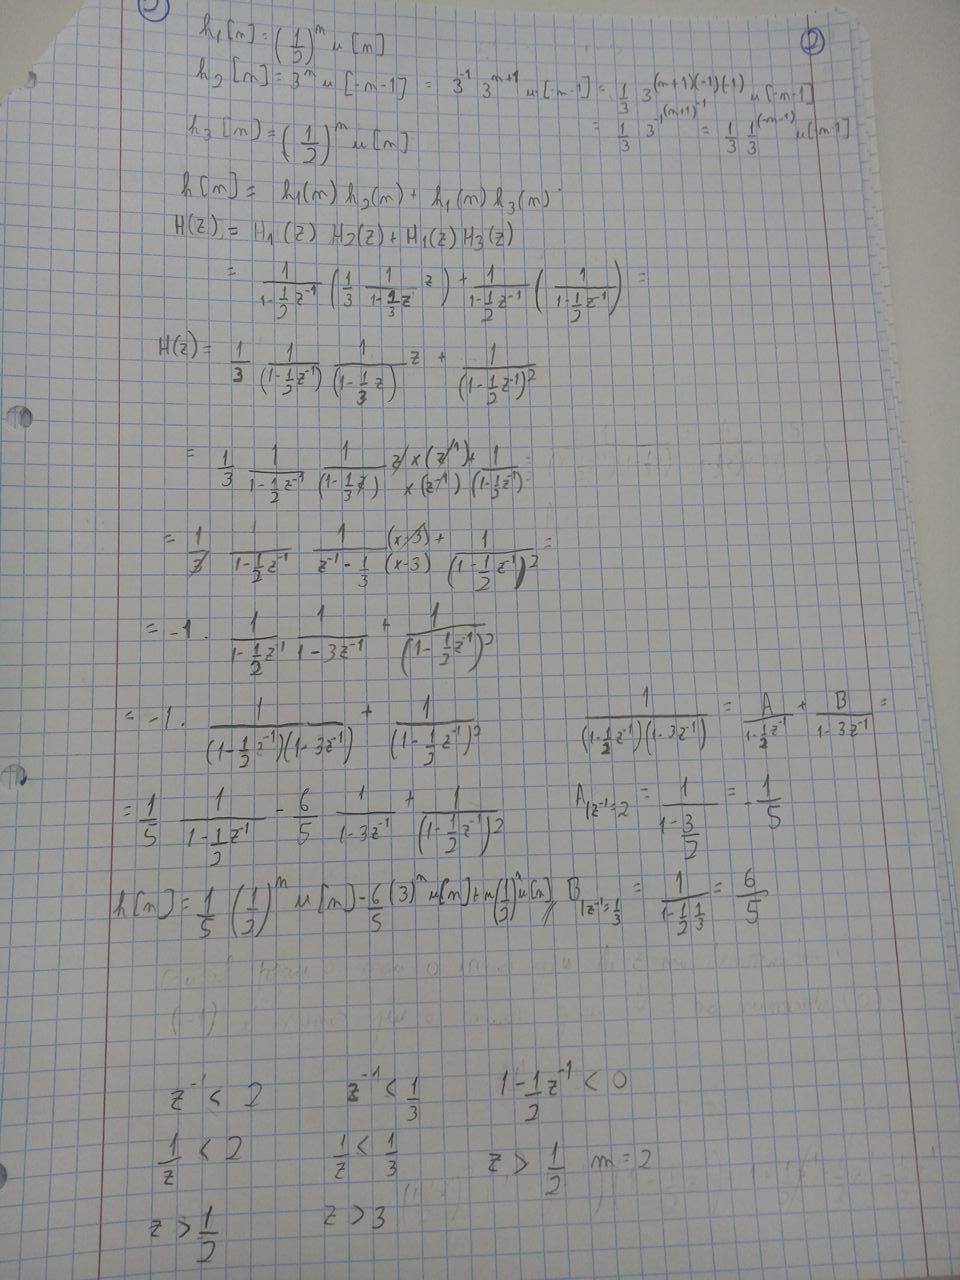 h₁[n] = (1/2)^n u[n]
h₂[n] = 3^n u[-n-1] = 3^-1 3^(n+1) u[-n-1] = 1/3 3^((n+1)(-1)(-1)) u[-n-1]
= 1/3 3^(-1(n+1)-1) = 1/3 1/3^(-n-1) u[-n-1]
h₃[n] = (1/2)^n u[n]
h[n] = h₁(n) h₂(n) + h₁(n) h₃(n)
H(z) = H₁(z) H₂(z) + H₁(z) H₃(z)
= 1/(1-1/2 z^-1) (1/3 1/(1-1/3 z) z) + 1/(1-1/2 z^-1) (1/(1-1/2 z^-1)) =
H(z) = 1/3 1/(1-1/2 z^-1) 1/(1-1/3 z) z + 1/(1-1/2 z^-1)^2
= 1/3 1/(1-1/2 z^-1) 1/(1-1/3 z) z x(z^-1)/x(z^-1) + 1/(1-1/3 z^-1) =
= 1/3 1/(1-1/2 z^-1) 1/(z^-1 - 1/3) (x-3)/(x-3) + 1/(1-1/2 z^-1)^2 =
= -1 · 1/(1-1/2 z^-1) 1/(1-3z^-1) + 1/(1-1/2 z^-1)^2
= -1 · 1/((1-1/2 z^-1)(1-3z^-1)) + 1/(1-1/2 z^-1)^2
1/((1-1/2 z^-1)(1-3z^-1)) = A/(1-1/2 z^-1) + B/(1-3z^-1) =
= 1/5 1/(1-1/2 z^-1) - 6/5 1/(1-3z^-1) + 1/(1-1/2 z^-1)^2
A|z^-1=2 = 1/(1-3/2) = -1/5
h[n] = 1/5 (1/2)^n u[n] - 6/5 (3)^n u[n] + n(1/2)^n u[n]
B|z^-1=1/3 = 1/(1-1/2 1/3) = 6/5
z^-1 < 2 z^-1 < 1/3 1-1/2 z^-1 < 0
1/z < 2 1/z < 1/3 z > 1/2 m = 2
z > 1/2 z > 3